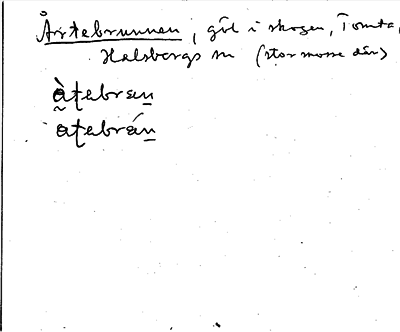 Årtebrunnen, göl i skogen, Tomta,
Halsbergs sn (stor mosse där)
à̰ţebrsen̲
aţebrán̲